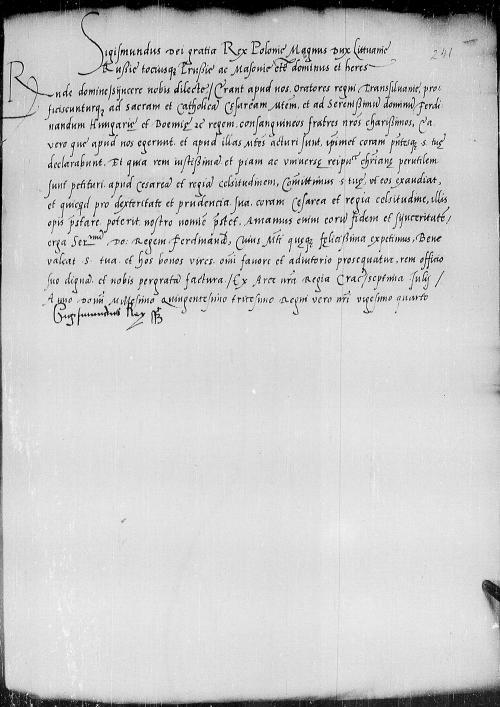 Sigismundus Dei gratia Rex Polonie Magnus Dux Lituanie
241
Russie totiusq Prussie ac Masovie etc dominus et heres
Rnde domine syncere nobis dilecte / Erant apud nos Oratores regni Transilvanie, pro-
ficiscunturq ad sacram et Catholica Cesaream Mtem, et ad Serenissimu dominu Ferdi-
nandum Hungarie et Boemie ac regem, consanguineos fratres nros charissimos, Ea
vero que apud nos egerunt, et apud illas Mtes acturi sunt, ipimet coram s. tue
declarabunt. Et quia rem iustissima et piam ac universe reipu christiane perutilem
sunt petituri apud cesarea et regia celsitudinem, Comittimus s tue, vt eos exaudiat,
et quicqd pro dexteritate et prudencia sua, coram Cesarea et regia celsitudine, illis
opis pstare poterit nostro nomine pstet. Amamus enim coru fidem et synceritate /
erga Ser Do: Regem Ferdinandu, Cuius Mti queq felicissima expetimus, Bene
valeat s. tua. et hos bonos viros omi favore et adiutorio prosequatur, rem officio
suo digna et nobis pergrata factura. / Ex Arce nra Regia Crac / septima Julij /
Anno Domi Millesimo Quingentesimo tricesimo Regni vero nri vigesimo quarto
Sigismundus Rex sst